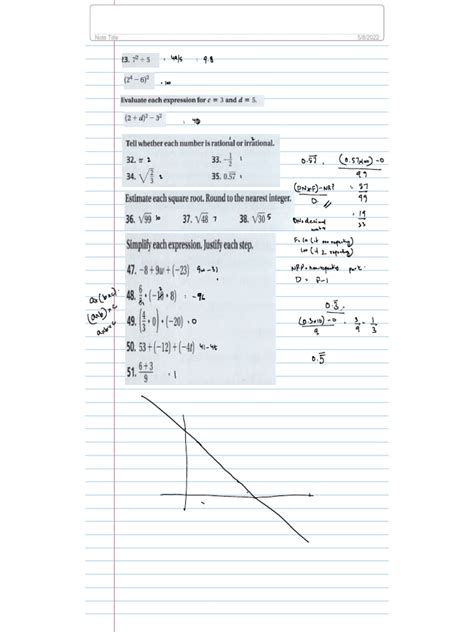 Note Title
5/8/2022
13. 7² ÷ 5 = 49/5 = 9.8
(2⁴ − 6)² = 100
Evaluate each expression for c = 3 and d = 5.
(2 + d)² − 3²
Tell whether each number is rational or irrational.
32. π 2
33. −1/2 1
34. √(2/3) 2
35. 0.57 1
Estimate each square root. Round to the nearest integer.
36. √99 10
37. √48 7
38. √30 5
Simplify each expression. Justify each step.
47. −8 + 9w + (−23) 9w − 31
48. 6/5 • (−10 • 8) = −96
49. (4/3 • 0) • (−20) = 0
50. 53 + (−12) + (−4t) 41 − 4t
51. (6+3)/9 = 1
(a×b)×c
0.57
(0.57×100) − 0
99
(DN×F) − NRP
D
= 57
99
= 19
33
F = 10 (if one repeating)
100 (if 2 repeating)
NRP = non-repeating part
D = F−1
0.3
(0.3×10) − 0
9
= 3/9 = 1/3
0.5